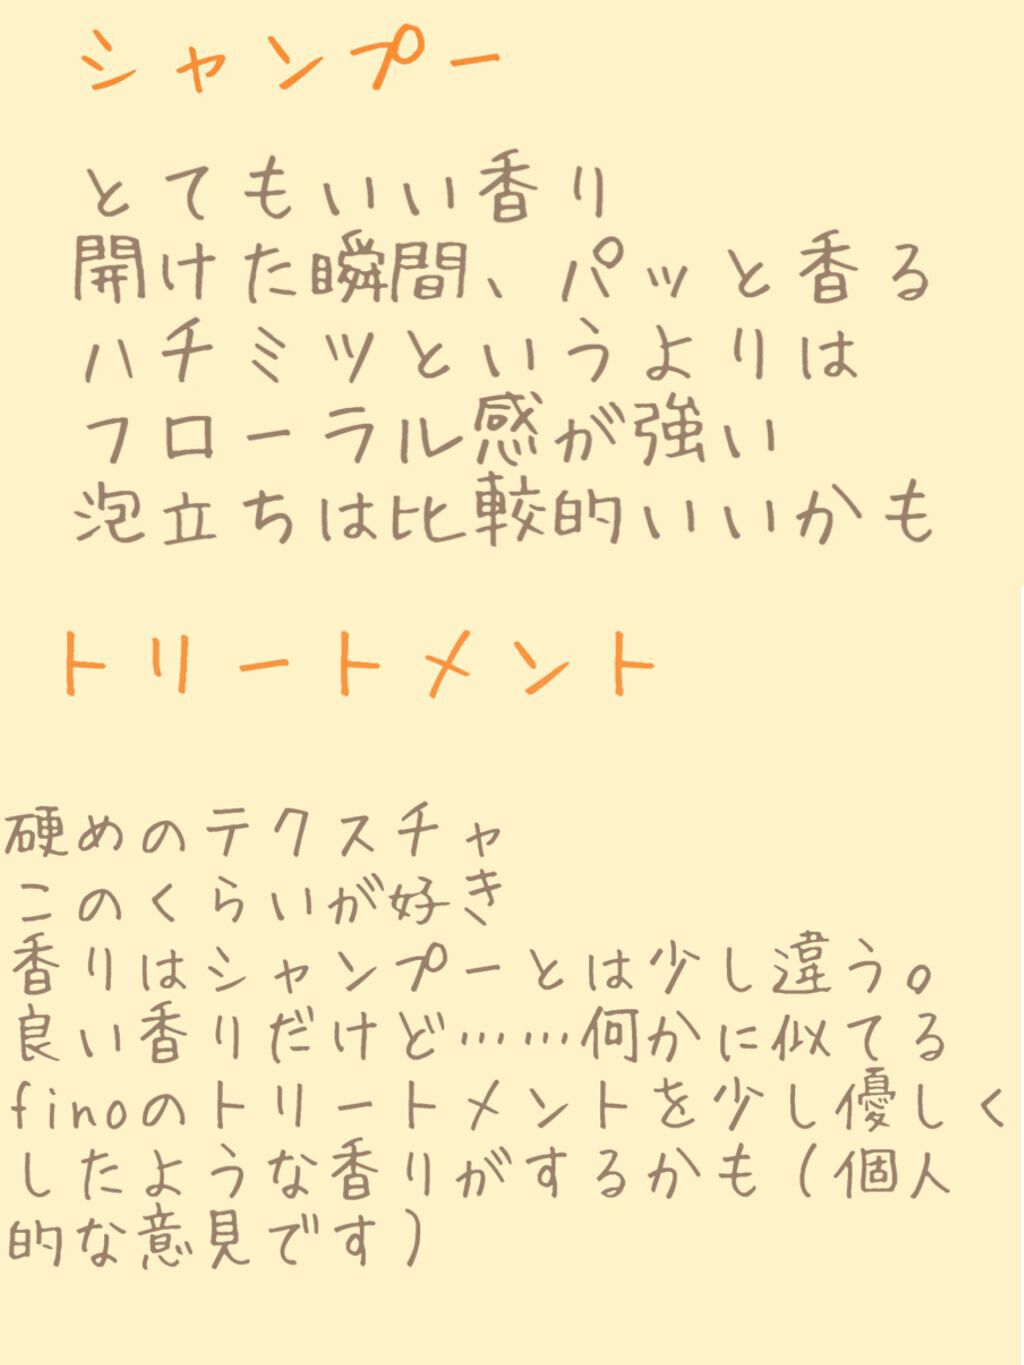 シャンプー
とてもいい香り
開けた瞬間、パッと香る
ハチミツというよりは
フローラル感が強い
泡立ちは比較的いいかも
トリートメント
硬めのテクスチャ
このくらいが好き
香りはシャンプーとは少し違う。
良い香りだけど……何かに似てる
finoのトリートメントを少し優しく
したような香りがするかも（個人
的な意見です）